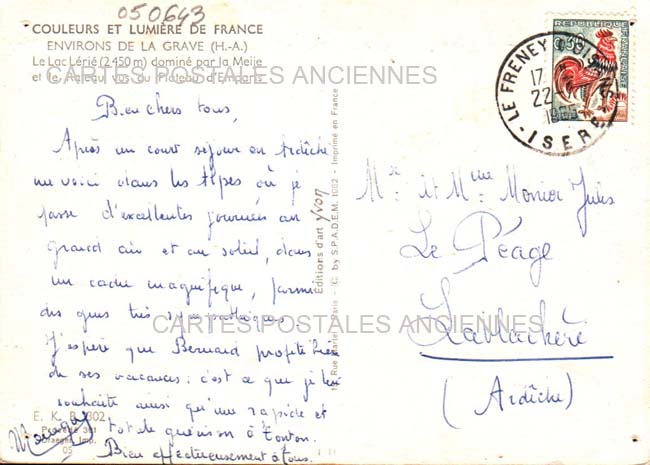 050643
COULEURS ET LUMIÈRE DE FRANCE
ENVIRONS DE LA GRAVE (H.-A.)
Le Lac Lérié (2450 m) dominé par la Meije
et le vus du Plateau d'Emparis
CARTES POSTALES ANCIENNES
Bien chers tous,
Après un court séjour en Ardèche
me voici dans les Alpes où je
passe d'excellentes journées au
grand air et au soleil, dans
un cadre magnifique, parmi
des gens très sympathiques.
CARTES POSTALES ANCIENNES
J'espère que Bernard profite bien
de ses vacances : c'est ce que je lui
souhaite ainsi qu'une rapide et
totale guérison à Tonton.
Bien affectueusement à tous.
E. K. B. 302
Draeger, Imp.
05
Editions d'art yvon
15, Rue Martel, Paris - © by S.P.A.D.E.M. 1962 - Imprimé en France
REPUBLIQUE
FRANÇAISE
0,30
LE FRENEY D'OISANS
17
22
1965
ISERE
Mr. et Mme Monier Jules
Le Péage
Lablachère
(Ardèche)